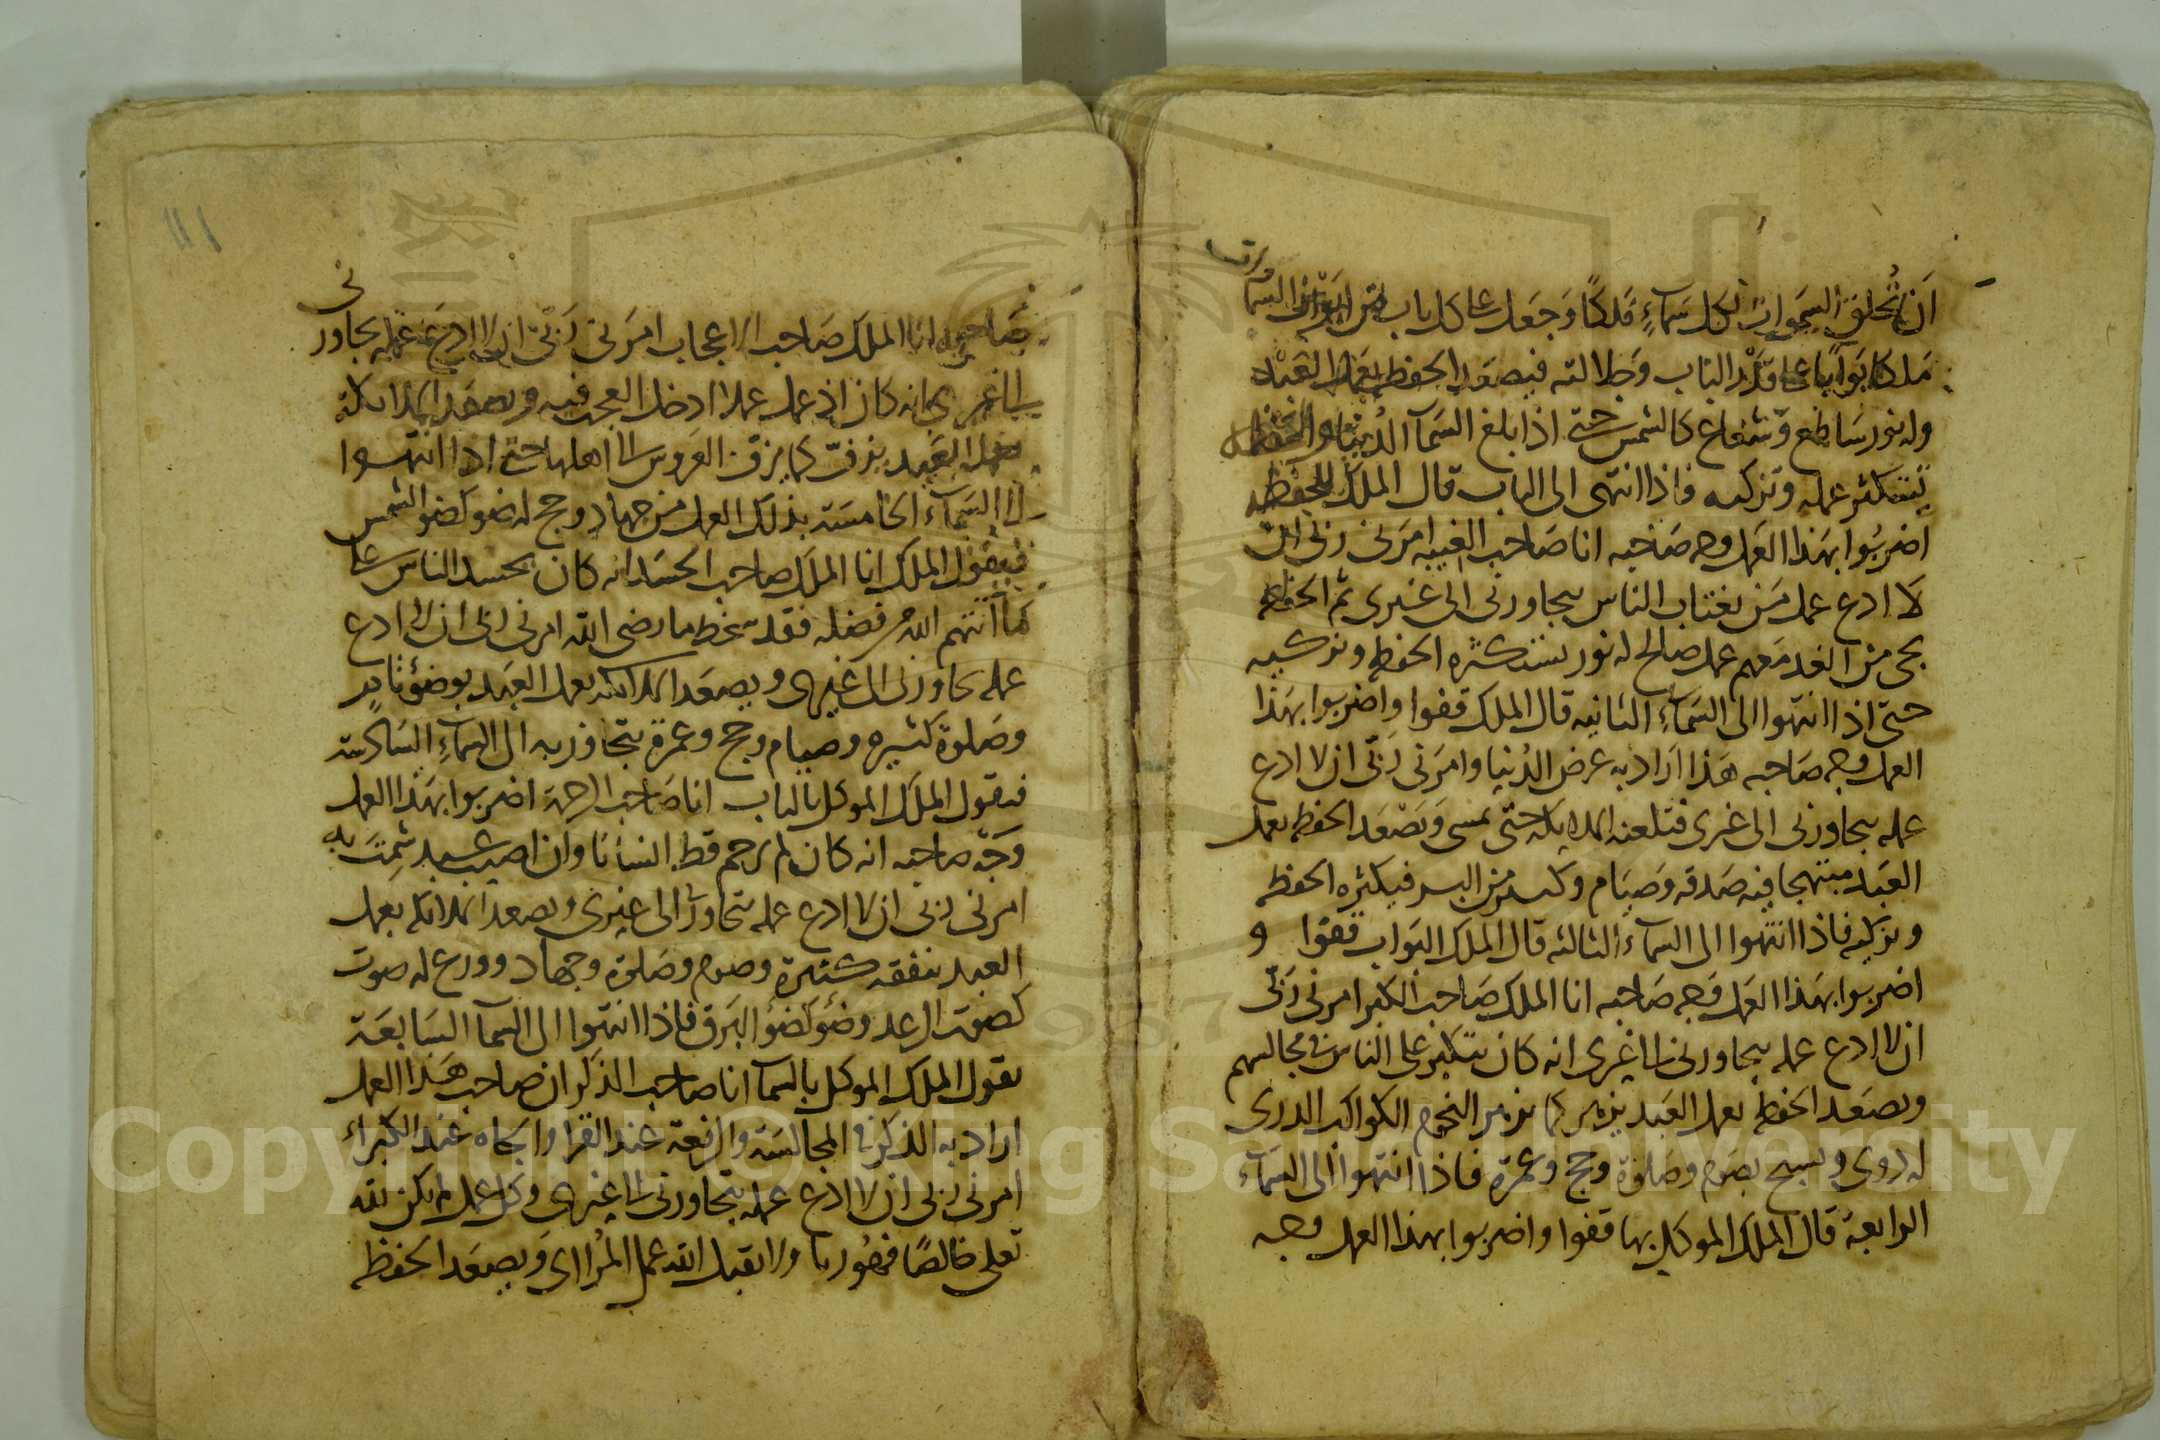 ان تخلق السموات لكل سماء ملكا وجعل على كل باب من ابواب السماء
ملكا بوابا على قدر الباب وجلالته فيصعد الحفظه بعمل العبد
وله نور ساطع وشعاع كالشمس حتى اذا بلغ السما الدنيا والحفظه
تستكثر عمله وتزكيه فاذا انتهى الى الباب قال الملك للحفظه
اضربوا بهذا العمل وجه صاحبه انا صاحب الغيبه امرنى ربى ان
لا ادع عمل من يغتاب الناس يجاوزنى الى غيرى ثم الحفظه
تجى من الغد معهم عمل صالح له نور تستكثره الحفظه وتزكيه
حتى اذا انتهوا الى السماء الثانيه قال الملك قفوا واضربوا بهذا
العمل وجه صاحبه هذا اراد به عرض الدنيا وامرنى ربى ان لا ادع
عمله يجاوزنى الى غيرى فتلعنه الملايكة حتى يمسى وتصعد الحفظه بعمل
العبد مبتهجا فيه صدقه وصيام وكثير من البر فيكثره الحفظه
وتزكيه فاذا انتهوا الى السماء الثالثه قال الملك البواب قفوا و
اضربوا بهذا العمل وجه صاحبه انا الملك صاحب الكبر امرنى ربى
ان لا ادع عمله يجاوزنى الى غيرى انه كان يتكبر على الناس فى مجالسهم
وتصعد الحفظه بعمل العبد يزهر كما تزهر النجوم الكواكب الدرى
له دوى وتسبيح بصوم وصلوة وحج وعمرة فاذا انتهوا الى السماء
الرابعة قال الملك الموكل بها قفوا واضربوا بهذا العمل وجه
صاحبه انا الملك صاحب الاعجاب امرنى ربى ان لا ادع عمله يجاوزنى
الى غيرى انه كان اذ عمل عملا ادخل العجب فيه وتصعد الملايكة
بعمل العبد يزف كما يزف العروس الى اهلها حتى اذا انتهوا
الى السماء الخامسة بذلك العمل من جهاد وحج له ضو كضو الشمس
فيقول الملك انا الملك صاحب الحسد انه كان يحسد الناس على
ما آتهم الله من فضله فقد سخط ما رضى الله امرنى ربى ان لا ادع
عمله يجاوزنى الى غيرى ويصعد الملايكة بعمل العبد بوضوء تام
وصلوة كثيره وصيام وحج وعمرة يتجاوز به الى السماء السادسة
فيقول الملك الموكل بالباب انا صاحب الرحمة اضربوا بهذا العمل
وجه صاحبه انه كان لم يرحم قط انسانا وان اصيب عبد شمت به
امرنى ربى ان لا ادع عمله يتجاوزنى الى غيرى ويصعد الملايكة بعمل
العبد بنفقه كثيرة وصوم وصلوة وجهاد وورع له صوت
كصوت الرعد وضؤ كضؤ البرق فاذا انتهوا الى السما السابعة
يقول الملك الموكل بالسما انا صاحب الذكر ان صاحب هذا العمل
اراد به الذكر فى المجالسة والرفعة عند القرا والجاه عند الكبراء
امرنى ربى ان لا ادع عمله يتجاوزنى الى غيرى وكل عمل لم يكن لله
تعلى خالصا فهو ريا ولا يقبل الله عمل المراى ويصعد الحفظه
Copyright © King Saud University
1957